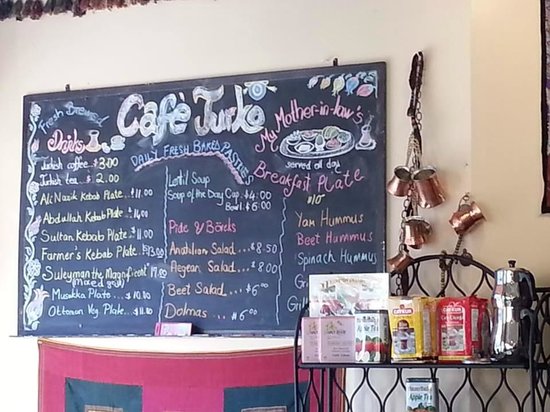 Fresh Brewed
Drinks
Turkish coffee . $3.00
Turkish tea . $2.00
Ali Nazik Kebab Plate . $11.00
Abdullah Kebab Plate . $14.00
Sultan Kebab Plate . $11.00
Farmer's Kebab Plate . $13.00
Suleyman the Magnificent
(mixed grill)
Musakka Plate ... $10.00
Ottoman Veg Plate .. $11.00
Café Turko
DAILY FRESH BAKED PASTRIES
Lentil Soup
Soup of the Day Cup . $4.00
Bowl . $6.00
Pide & Böreks
Anatolian Salad .... $8.50
Aegean Salad .... $8.00
Beet Salad .... $6.00
Dolmas ... $6.00
My Mother-in-law's
served all day
Breakfast Plate
$10
Yam Hummus
Beet Hummus
Spinach Hummus
Apple Tea
Apple Tea